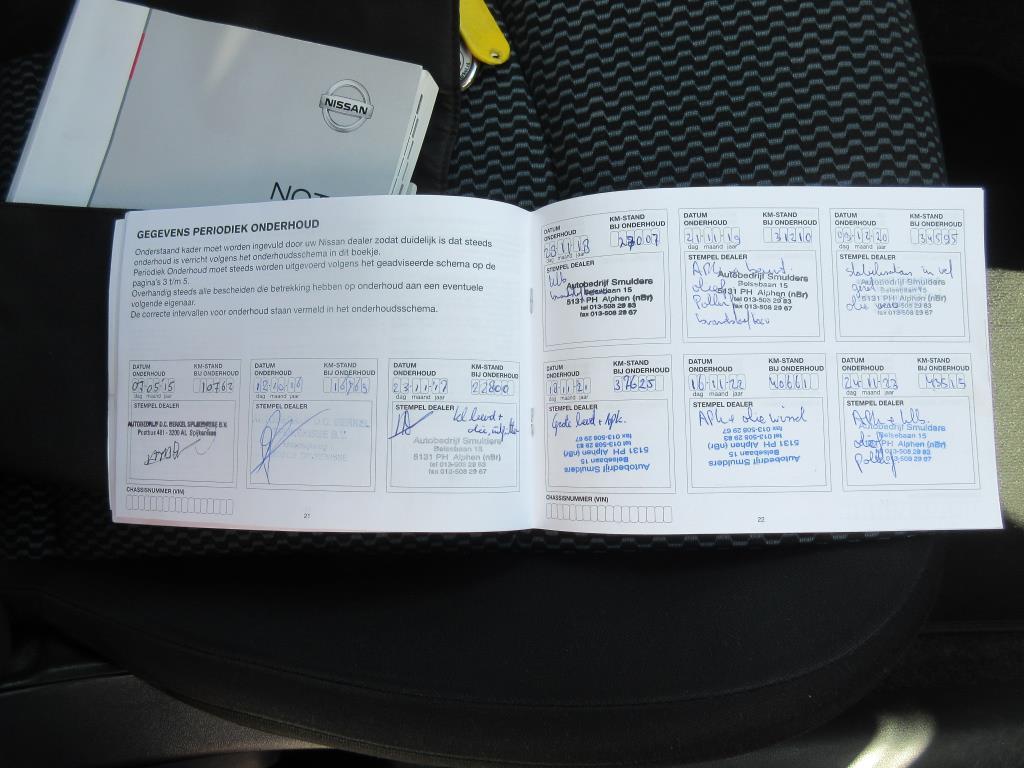 NISSAN
NOT
GEGEVENS PERIODIEK ONDERHOUD
Onderstaand kader moet worden ingevuld door uw Nissan dealer zodat duidelijk is dat steeds
onderhoud is verricht volgens het onderhoudsschema in dit boekje.
Periodiek Onderhoud moet steeds worden uitgevoerd volgens het geadviseerde schema op de
pagina's 3 t/m 5.
Overhandig steeds alle bescheiden die betrekking hebben op onderhoud aan een eventuele
volgende eigenaar.
De correcte intervallen voor onderhoud staan vermeld in het onderhoudsschema.
DATUM ONDERHOUD
KM-STAND BIJ ONDERHOUD
07-05-15
10762
dag maand jaar
STEMPEL DEALER
Postbus 481 - 3200 AL Spijkenisse
DATUM ONDERHOUD
KM-STAND BIJ ONDERHOUD
12-10-16
dag maand jaar
STEMPEL DEALER
DATUM ONDERHOUD
KM-STAND BIJ ONDERHOUD
23-11-17
22800
dag maand jaar
STEMPEL DEALER
Autobedrijf Smulders
Belsebaan 15
5131 PH Alphen (nBr)
tel 013-508 29 83
fax 013-508 29 67
CHASSISNUMMER (VIN)
21
DATUM ONDERHOUD
KM-STAND BIJ ONDERHOUD
dag maand jaar
STEMPEL DEALER
Autobedrijf Smulders
Belsebaan 15
5131 PH Alphen (nBr)
tel 013-508 29 83
fax 013-508 29 67
DATUM ONDERHOUD
KM-STAND BIJ ONDERHOUD
21-11-19
31210
dag maand jaar
STEMPEL DEALER
Autobedrijf Smulders
Belsebaan 15
5131 PH Alphen (nBr)
tel 013-508 29 83
fax 013-508 29 67
DATUM ONDERHOUD
KM-STAND BIJ ONDERHOUD
03-12-20
34595
dag maand jaar
STEMPEL DEALER
Autobedrijf Smulders
Belsebaan 15
5131 PH Alphen (nBr)
tel 013-508 29 83
fax 013-508 29 67
DATUM ONDERHOUD
KM-STAND BIJ ONDERHOUD
37625
dag maand jaar
STEMPEL DEALER
Grote beurt + apk.
Autobedrijf Smulders
Belsebaan 15
5131 PH Alphen (nBr)
tel 013-508 29 83
fax 013-508 29 67
DATUM ONDERHOUD
KM-STAND BIJ ONDERHOUD
16-11-22
40661
dag maand jaar
STEMPEL DEALER
Autobedrijf Smulders
Belsebaan 15
5131 PH Alphen (nBr)
tel 013-508 29 83
fax 013-508 29 67
DATUM ONDERHOUD
KM-STAND BIJ ONDERHOUD
24-11-23
43515
dag maand jaar
STEMPEL DEALER
Autobedrijf Smulders
Belsebaan 15
5131 PH Alphen (nBr)
tel 013-508 29 83
fax 013-508 29 67
CHASSISNUMMER (VIN)
22